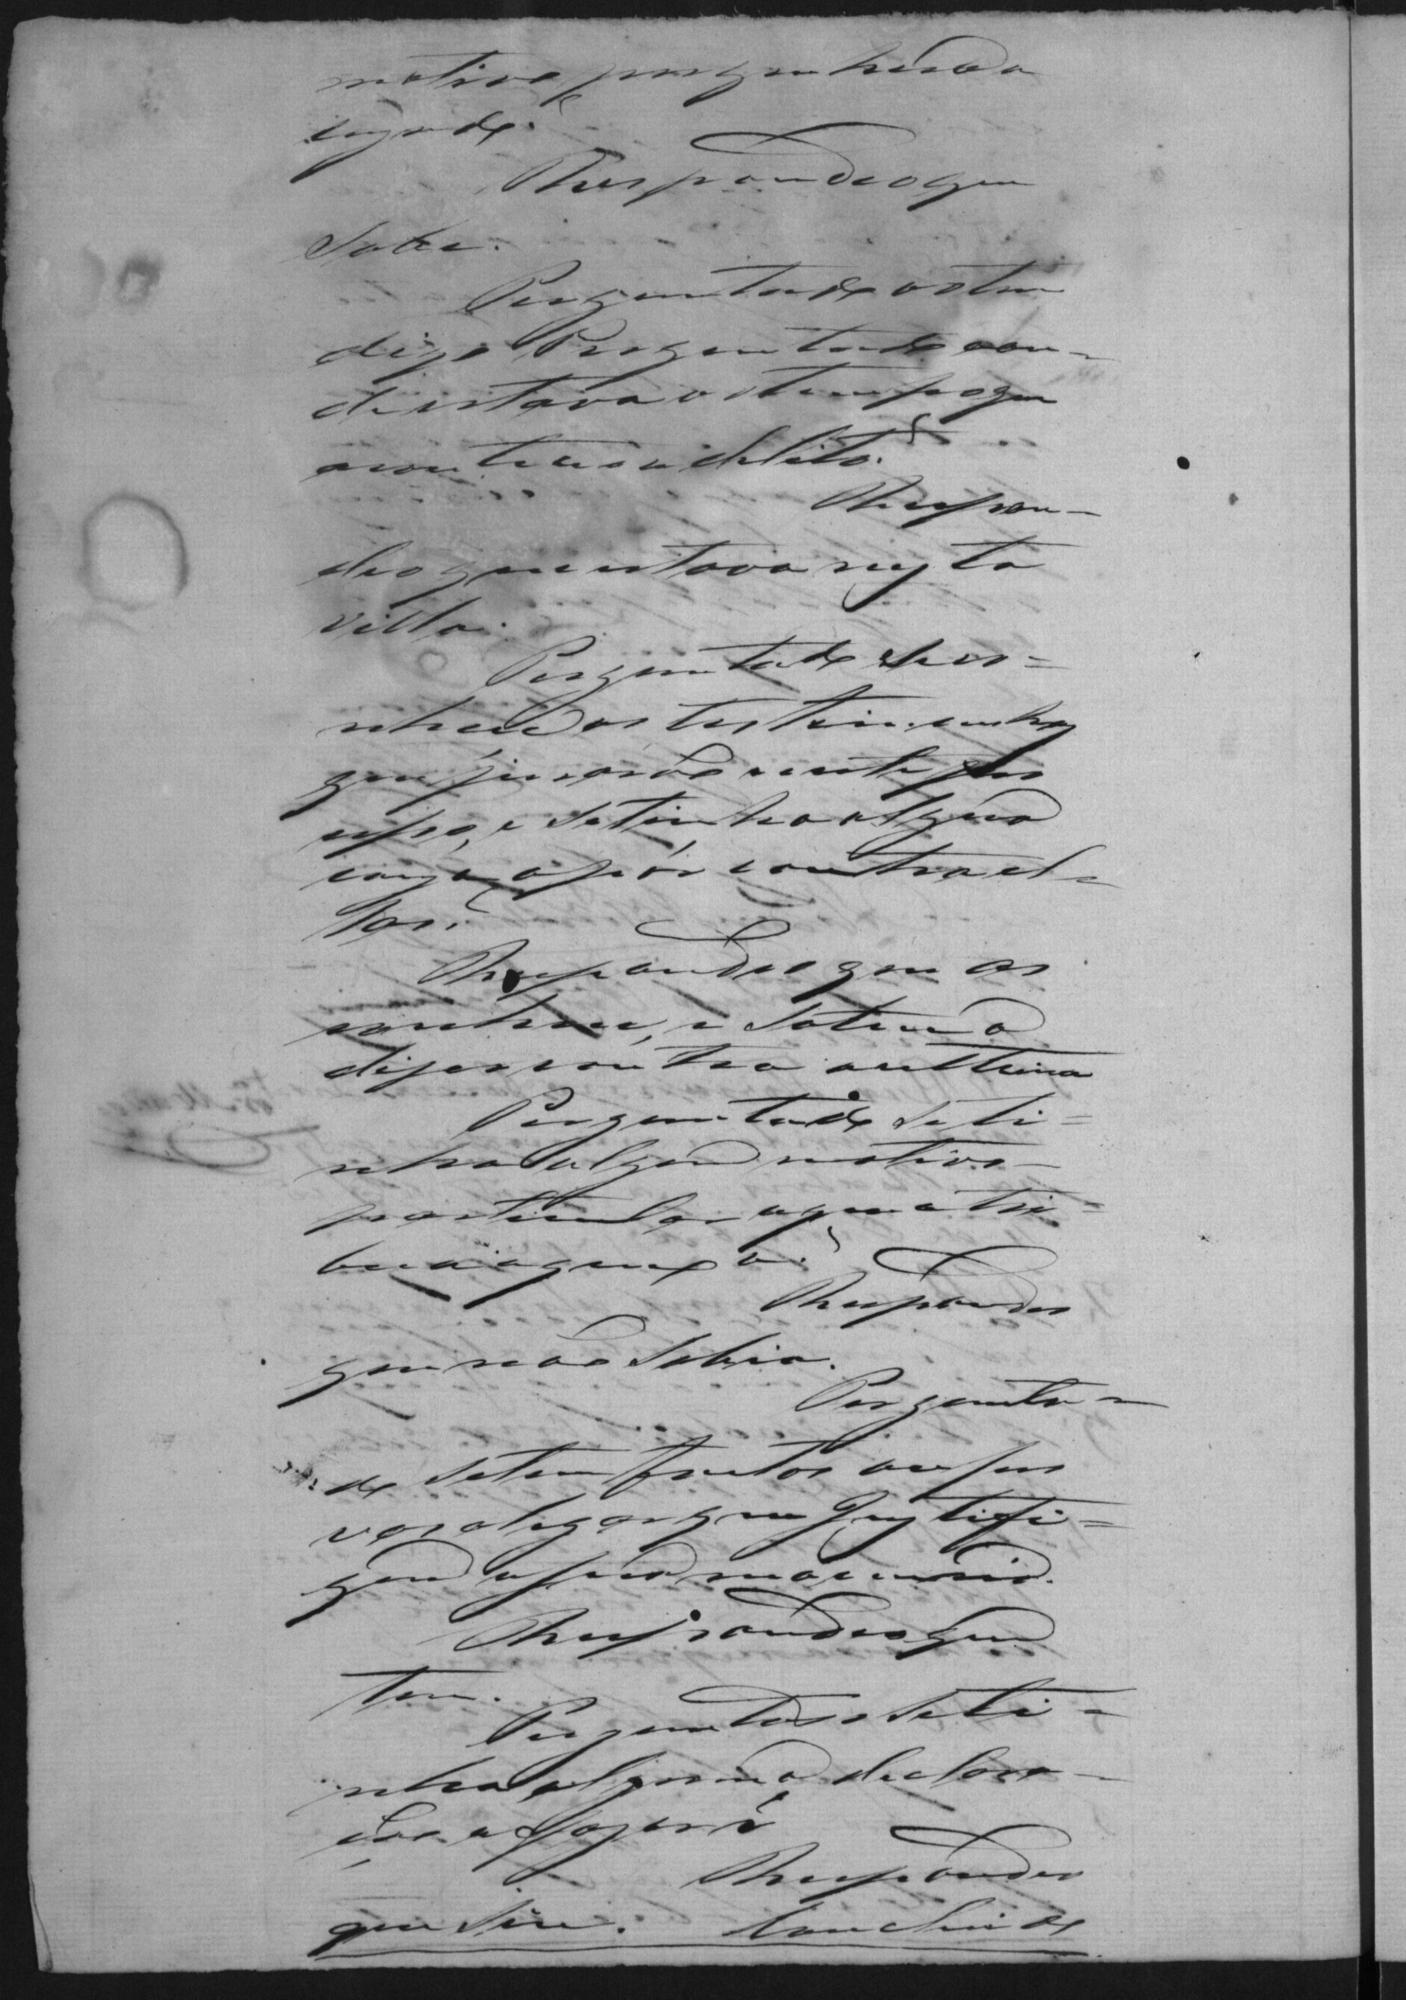 motivo porque hé sida
Respondeo que
Sabe.
Perguntado o tem
digo Perguntado aon-
de estava o tempo que
aconteceu o delito?
Respon-
deo que estava nesta
villa.
Perguntado se co=
nhece as testemunhas
que jurarão neste pro
cesso, e se tinha algũa
couza a pôr contra el-
las?
Respondeo que as
conhece, e só tem a
dizer contra a ultima
Perguntado se ti=
nha algum motivo
particular a que atri=
bua a queixa?
Respondeo
que não Sabia.
Pergunta-
do se tem factos ou pro
vas a alegar que Justifi=
quem
Respondeo que
tem.
Perguntado se ti=
nha alguma declara-
ção a fazer?
Respondeo
que Sim. Concluido